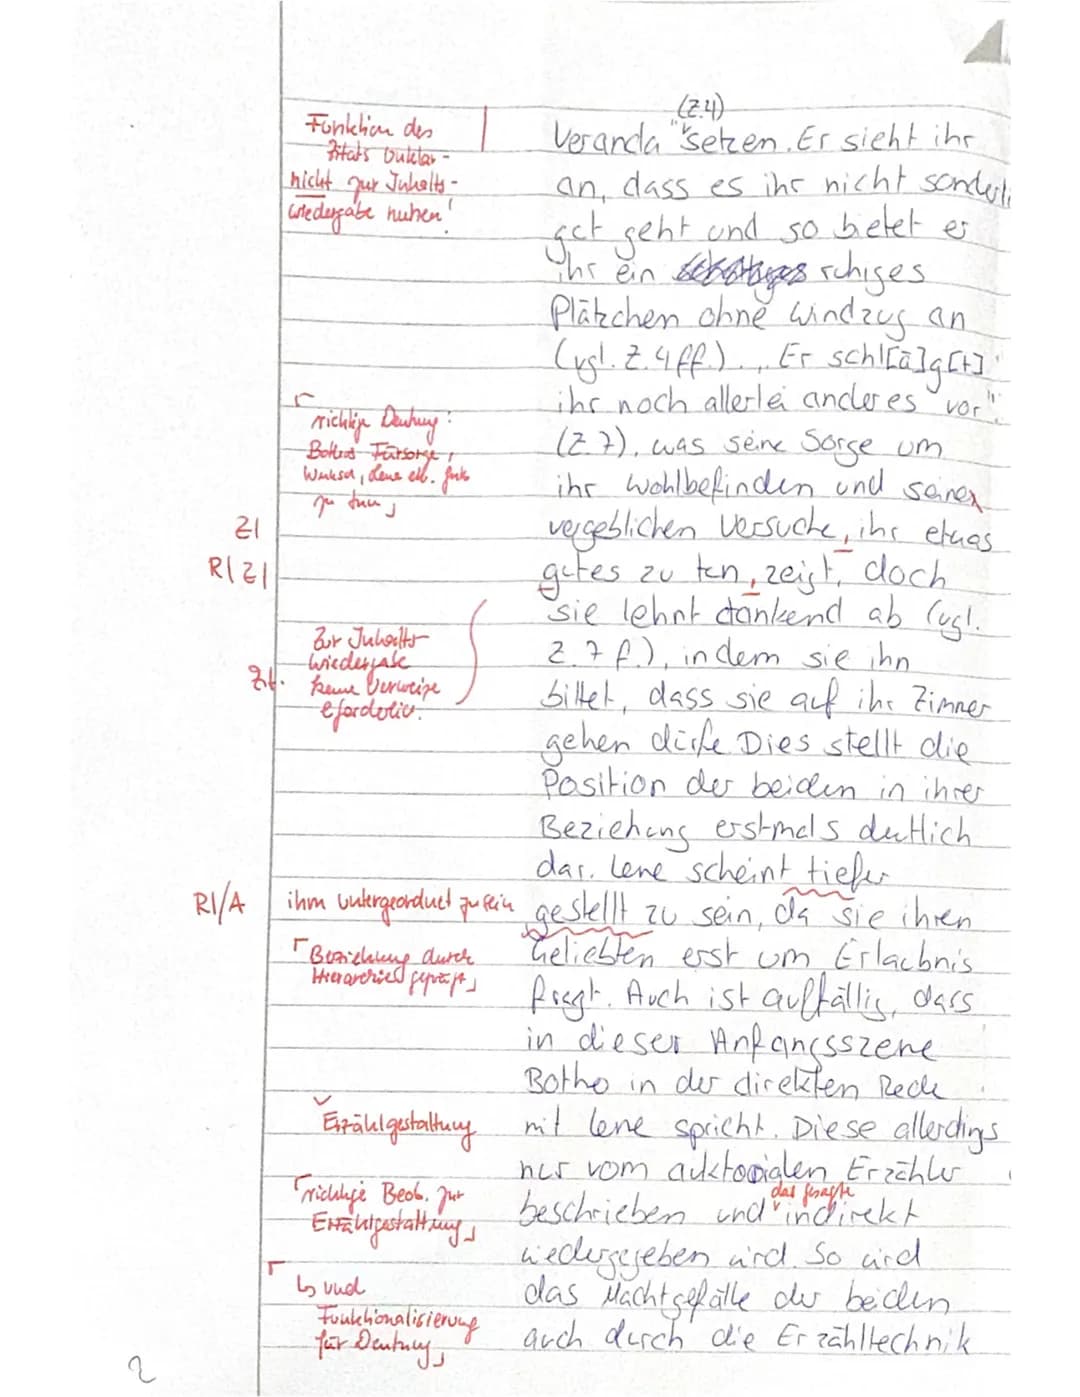 (Z.4)
Funktion des
Zitats unklar -
nicht zur Inhalts-
wiedergabe nutzen!
Veranda" setzen. Er sieht ihr
an, dass es ihr nicht sonderli
gut geht und so bietet er
ihr ein ruhiges
Plätzchen ohne Windzug an
(vgl. Z. 4 ff.). „Er schl[ä]g[t]
ihr noch allerlei anderes vor"
(Z. 7), was seine Sorge um
ihr Wohlbefinden und seinen
vergeblichen Versuche, ihr etwas
gutes zu tun, zeigt, doch
sie lehnt dankend ab (vgl.
Z. 7 f.), indem sie ihn
bittet, dass sie auf ihr Zimmer
gehen dürfe. Dies stellt die
Position der beiden in ihrer
Beziehung erstmals deutlich
dar. Lene scheint tiefer
gestellt zu sein, da sie ihren
Geliebten erst um Erlaubnis
fragt. Auch ist auffällig, dass
in dieser Anfangsszene
Botho in der direkten Rede
mit Lene spricht. Diese allerdings
nur vom auktorialen Erzähler
das gesagte
beschrieben und indirekt
wiedergegeben wird. So wird
das Machtgefälle der beiden
auch durch die Erzähltechnik
richtige Deutung:
Bothos Fürsorge,
Wunsch, Lene etw. Gutes
zu tun
ZI
R/ZI
Zur Inhalts-
wiedergabe
keine Verweise
erforderlich.
Zit.
RI/A
ihm untergeordnet zu sein
Beziehung durch
Hierarchien geprägt
Erzählgestaltung
richtige Beob. zur
Erzählgestaltung
↳ und
Funktionalisierung
für Deutung
2